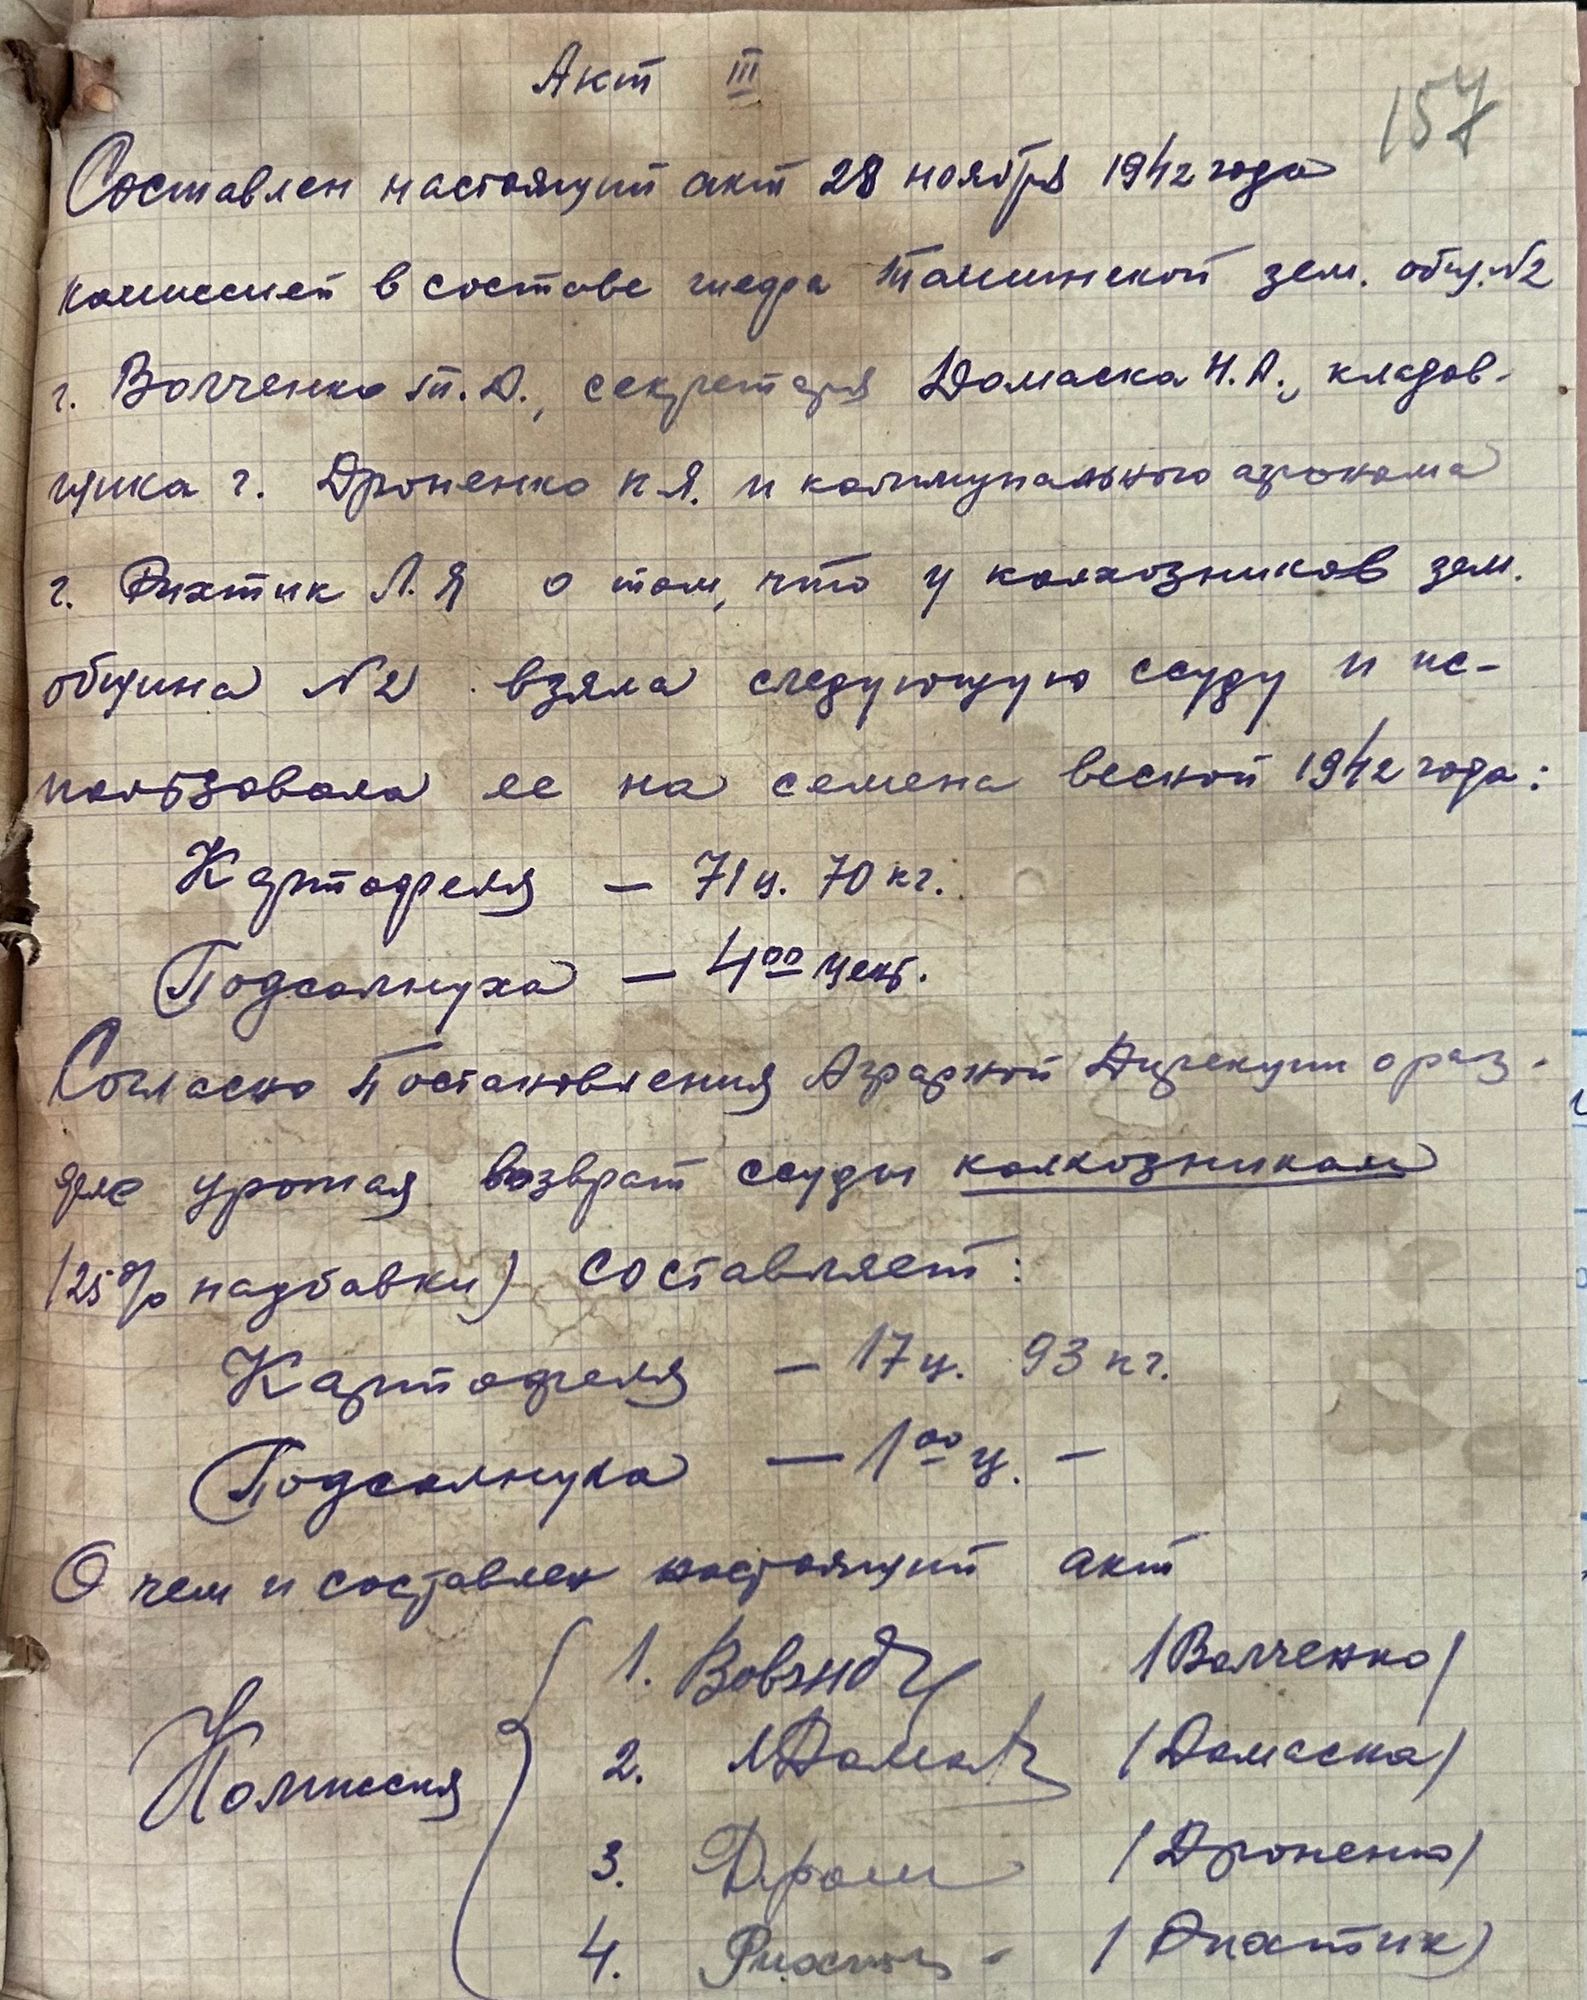 Акт III
157
Составлен настоящий акт 28 ноября 1942 года
комиссией в составе шефа Талинской зем. общ. №2
г. Волченко П. Д., секретаря Домаска Н. А., кладов-
щика г. Дроненко П Я. и коммунального агронома
г. Рихтик Л. Я о том, что у колхозников зем.
община №2 взяла следующую ссуду и ис-
пользовала ее на семена весной 1942 года:
Картофеля — 71 ц. 70 кг.
Подсолнуха — 4⁰⁰ цент.
Согласно Постановления Аграрной Дирекции о раз-
деле урожая возврат ссуды колхозникам
(25% надбавки) составляет:
Картофеля — 17 ц. 93 кг.
Подсолнуха — 1⁰⁰ ц. —
О чем и составлен настоящий акт
Комиссия
1. /Волченко/
2. /Домаска/
3. /Дроненко/
4. /Рихтик/